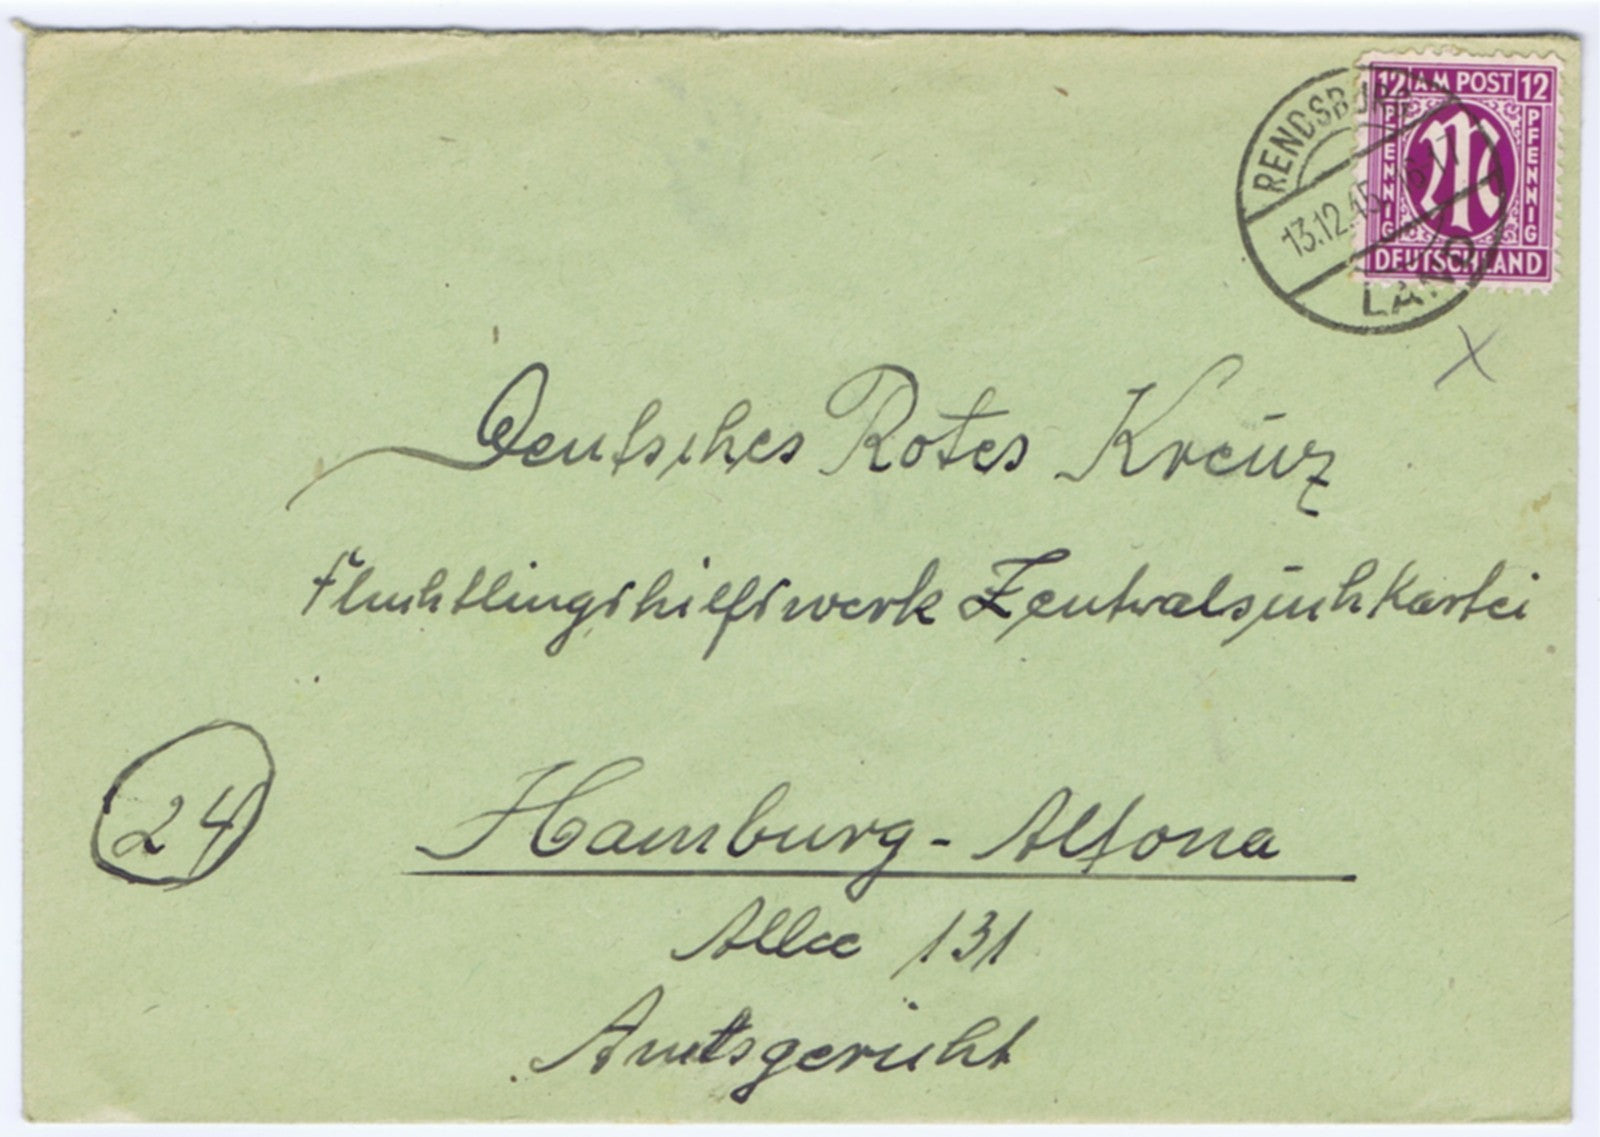 12 AM POST 12
PFENNIG PFENNIG
DEUTSCHLAND
RENDSBURG
13.12.45. 16-17
LAND
Deutsches Rotes Kreuz
Fluchtlingshilfswerk Zentralsuchkartei
24
Hamburg-Altona
Allee 131
Amtsgericht